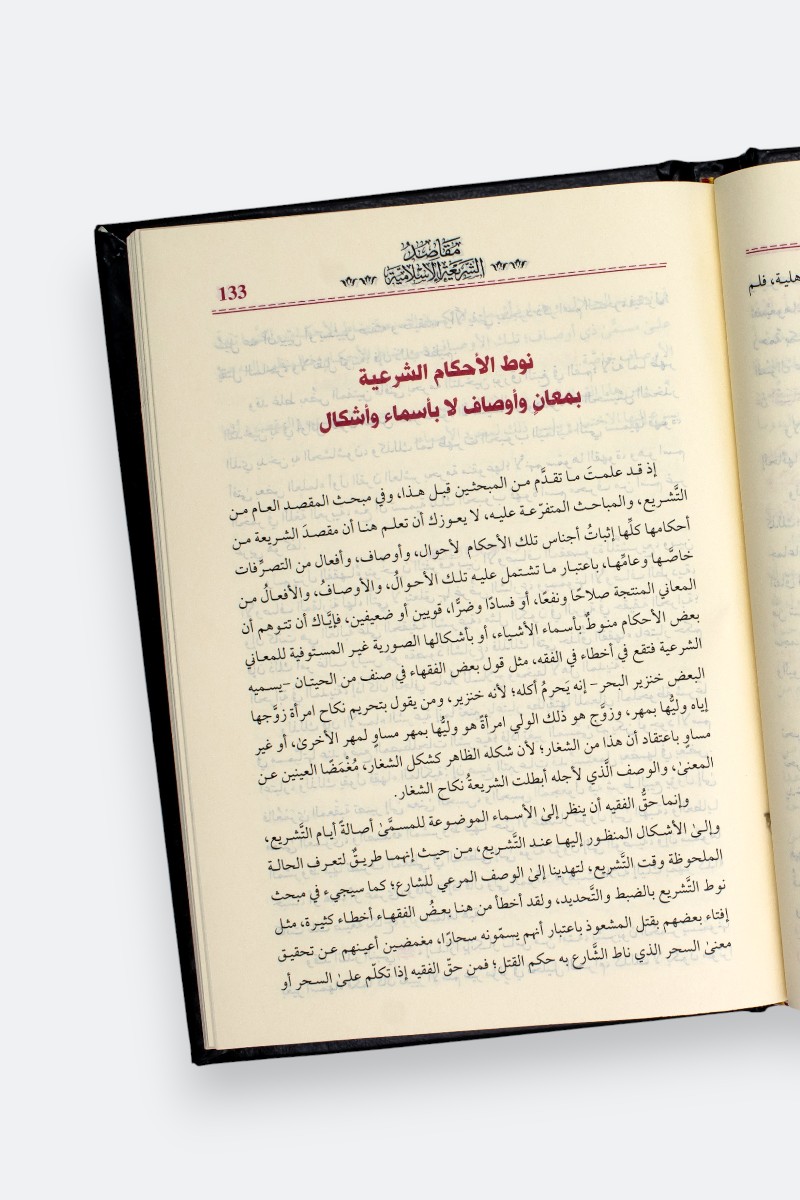 مقاصد
الشريعة الإسلامية
133
نوط الأحكام الشرعية
بمعانٍ وأوصاف لا بأسماء وأشكال
إذ قد علمتَ ما تقدَّم من المبحثين قبل هذا، وفي مبحث المقصد العام من
التَّشريع، والمباحث المتفرّعة عليه، لا يعوزك أن تعلم هنا أن مقصدَ الشريعة من
أحكامها كلِّها إثباتُ أجناس تلك الأحكام لأحوال، وأوصاف، وأفعال من التصرِّفات
خاصَّها وعامِّها، باعتبار ما تشتمل عليه تلك الأحوالُ، والأوصافُ، والأفعالُ من
المعاني المنتجة صلاحًا ونفعًا، أو فسادًا وضرًّا، قويين أو ضعيفين، فإيَّاك أن تتوهم أن
بعض الأحكام منوطٌ بأسماء الأشياء، أو بأشكالها الصورية غير المستوفية للمعاني
الشرعية فتقع في أخطاء في الفقه، مثل قول بعض الفقهاء في صنف من الحيتان –يسميه
البعض خنزير البحر– إنه يَحرمُ أكله؛ لأنه خنزير، ومن يقول بتحريم نكاح امرأة زوَّجها
إياه وليُّها بمهر، وزوَّج هو ذلك الولي امرأةً هو وليُّها بمهر مساوٍ لمهر الأخرىٰ، أو غير
مساوٍ باعتقاد أن هذا من الشغار؛ لأن شكله الظاهر كشكل الشغار، مُغْمَضًا العينين عن
المعنىٰ، والوصف الَّذي لأجله أبطلت الشريعةُ نكاح الشغار.
وإنما حقُّ الفقيه أن ينظر إلىٰ الأسماء الموضوعة للمسمَّىٰ أصالةً أيام التَّشريع،
وإلىٰ الأشكال المنظور إليها عند التَّشريع، من حيث إنهما طريقٌ لتعرف الحالة
الملحوظة وقت التَّشريع، لتهدينا إلىٰ الوصف المرعي للشارع؛ كما سيجيء في مبحث
نوط التَّشريع بالضبط والتَّحديد، ولقد أخطأ من هنا بعضُ الفقهاء أخطاء كثيرة، مثل
إفتاء بعضهم بقتل المشعوذ باعتبار أنهم يسمّونه سحارًا، مغمضين أعينهم عن تحقيق
معنىٰ السحر الذي ناط الشَّارع به حكم القتل؛ فمن حقّ الفقيه إذا تكلّم علىٰ السحر أو
فلم